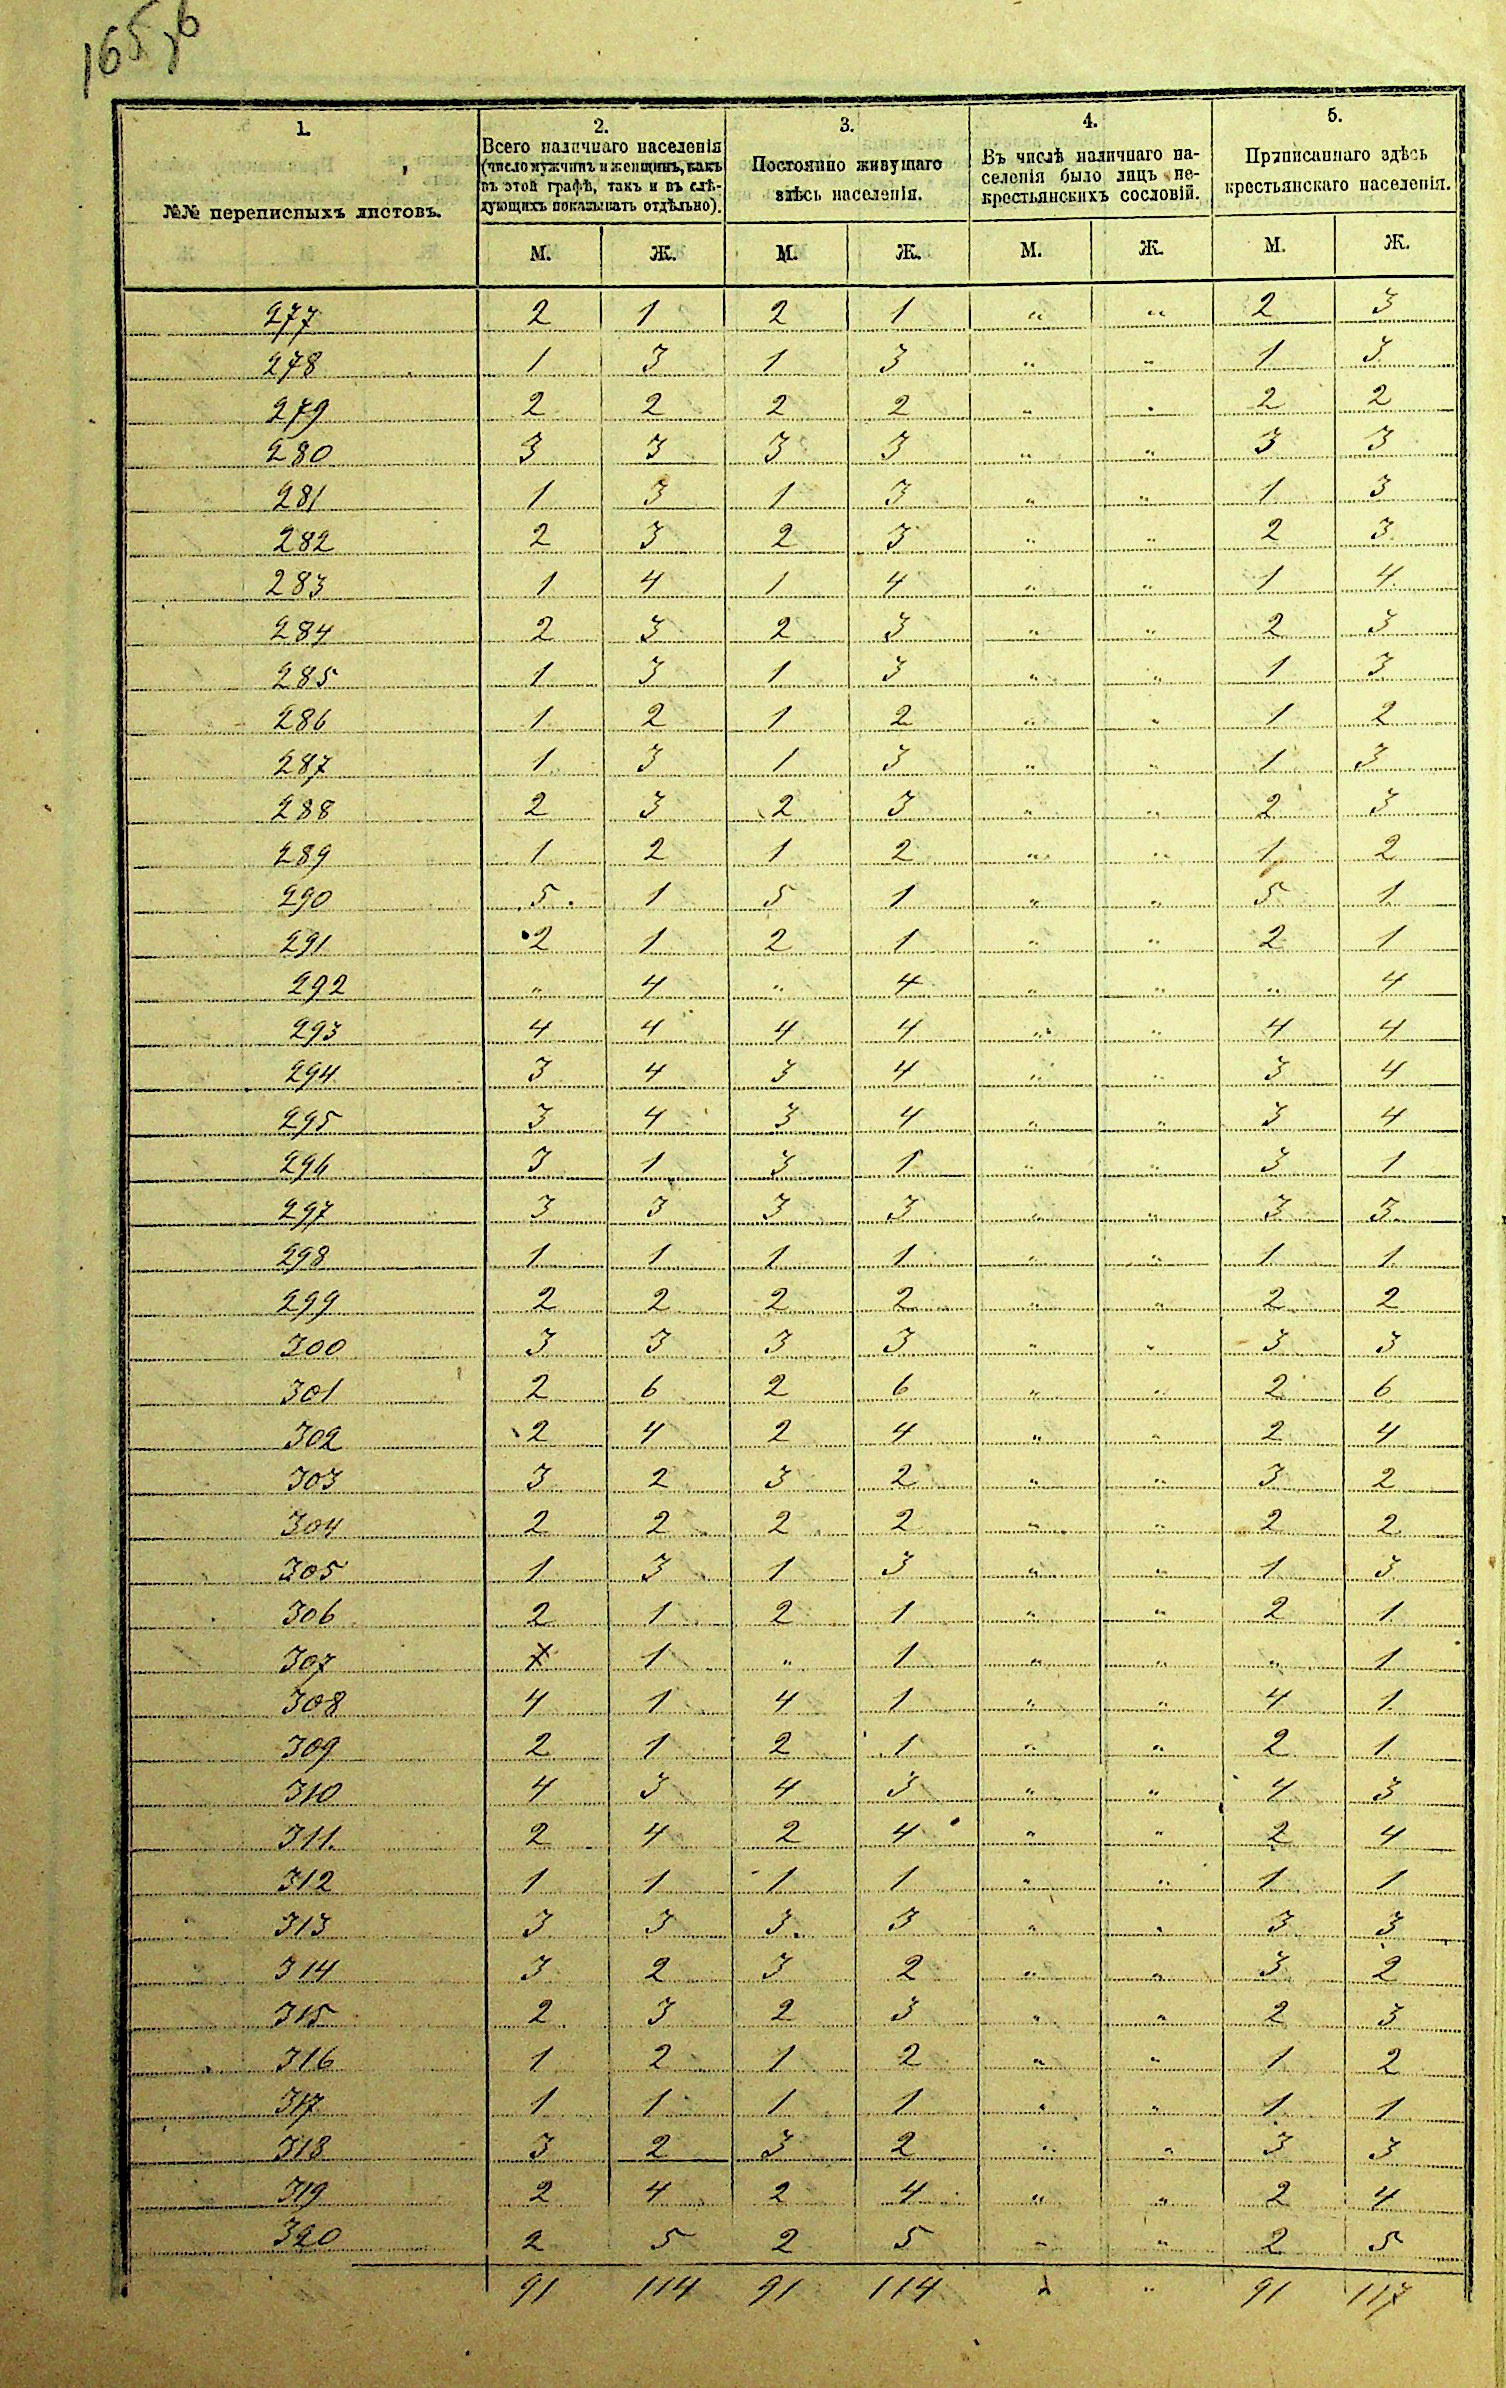 165,б
1. 2. 3. 4. 5.
№№ переписныхъ листовъ.
Всего наличнаго населенія
(число мужчинъ и женщинъ, какъ
въ этой графѣ, такъ и въ слѣ-
дующихъ показывать отдѣльно).
Постоянно живущаго
здѣсь населенія.
Въ числѣ наличнаго на-
селенія было лицъ не-
крестьянскихъ сословій.
Приписаннаго здѣсь
крестьянскаго населенія.
М. Ж. М. Ж. М. Ж. М. Ж.
277 2 1 2 1 " " 2 3
278 1 3 1 3 " " 1 3
279 2 2 2 2 " " 2 2
280 3 3 3 3 " " 3 3
281 1 3 1 3 " " 1 3
282 2 3 2 3 " " 2 3
283 1 4 1 4 " " 1 4
284 2 3 2 3 " " 2 3
285 1 3 1 3 " " 1 3
286 1 2 1 2 " " 1 2
287 1 3 1 3 " " 1 3
288 2 3 2 3 " " 2 3
289 1 2 1 2 " " 1 2
290 5 1 5 1 " " 5 1
291 2 1 2 1 " " 2 1
292 " 4 " 4 " " " 4
293 4 4 4 4 " " 4 4
294 3 4 3 4 " " 3 4
295 3 4 3 4 " " 3 4
296 3 1 3 1 " " 3 1
297 3 3 3 3 " " 3 3
298 1 1 1 1 " " 1 1
299 2 2 2 2 " " 2 2
300 3 3 3 3 " " 3 3
301 2 6 2 6 " " 2 6
302 2 4 2 4 " " 2 4
303 3 2 3 2 " " 3 2
304 2 2 2 2 " " 2 2
305 1 3 1 3 " " 1 3
306 2 1 2 1 " " 2 1
307 1 " 1 " " " 1
308 4 1 4 1 " " 4 1
309 2 1 2 1 " " 2 1
310 4 3 4 3 " " 4 3
311 2 4 2 4 " " 2 4
312 1 1 1 1 " " 1 1
313 3 3 3 3 " " 3 3
314 3 2 3 2 " " 3 2
315 2 3 2 3 " " 2 3
316 1 2 1 2 " " 1 2
317 1 1 1 1 " " 1 1
318 3 2 3 2 " " 3 3
319 2 4 2 4 " " 2 4
320 2 5 2 5 " " 2 5
91 114 91 114 " " 91 117